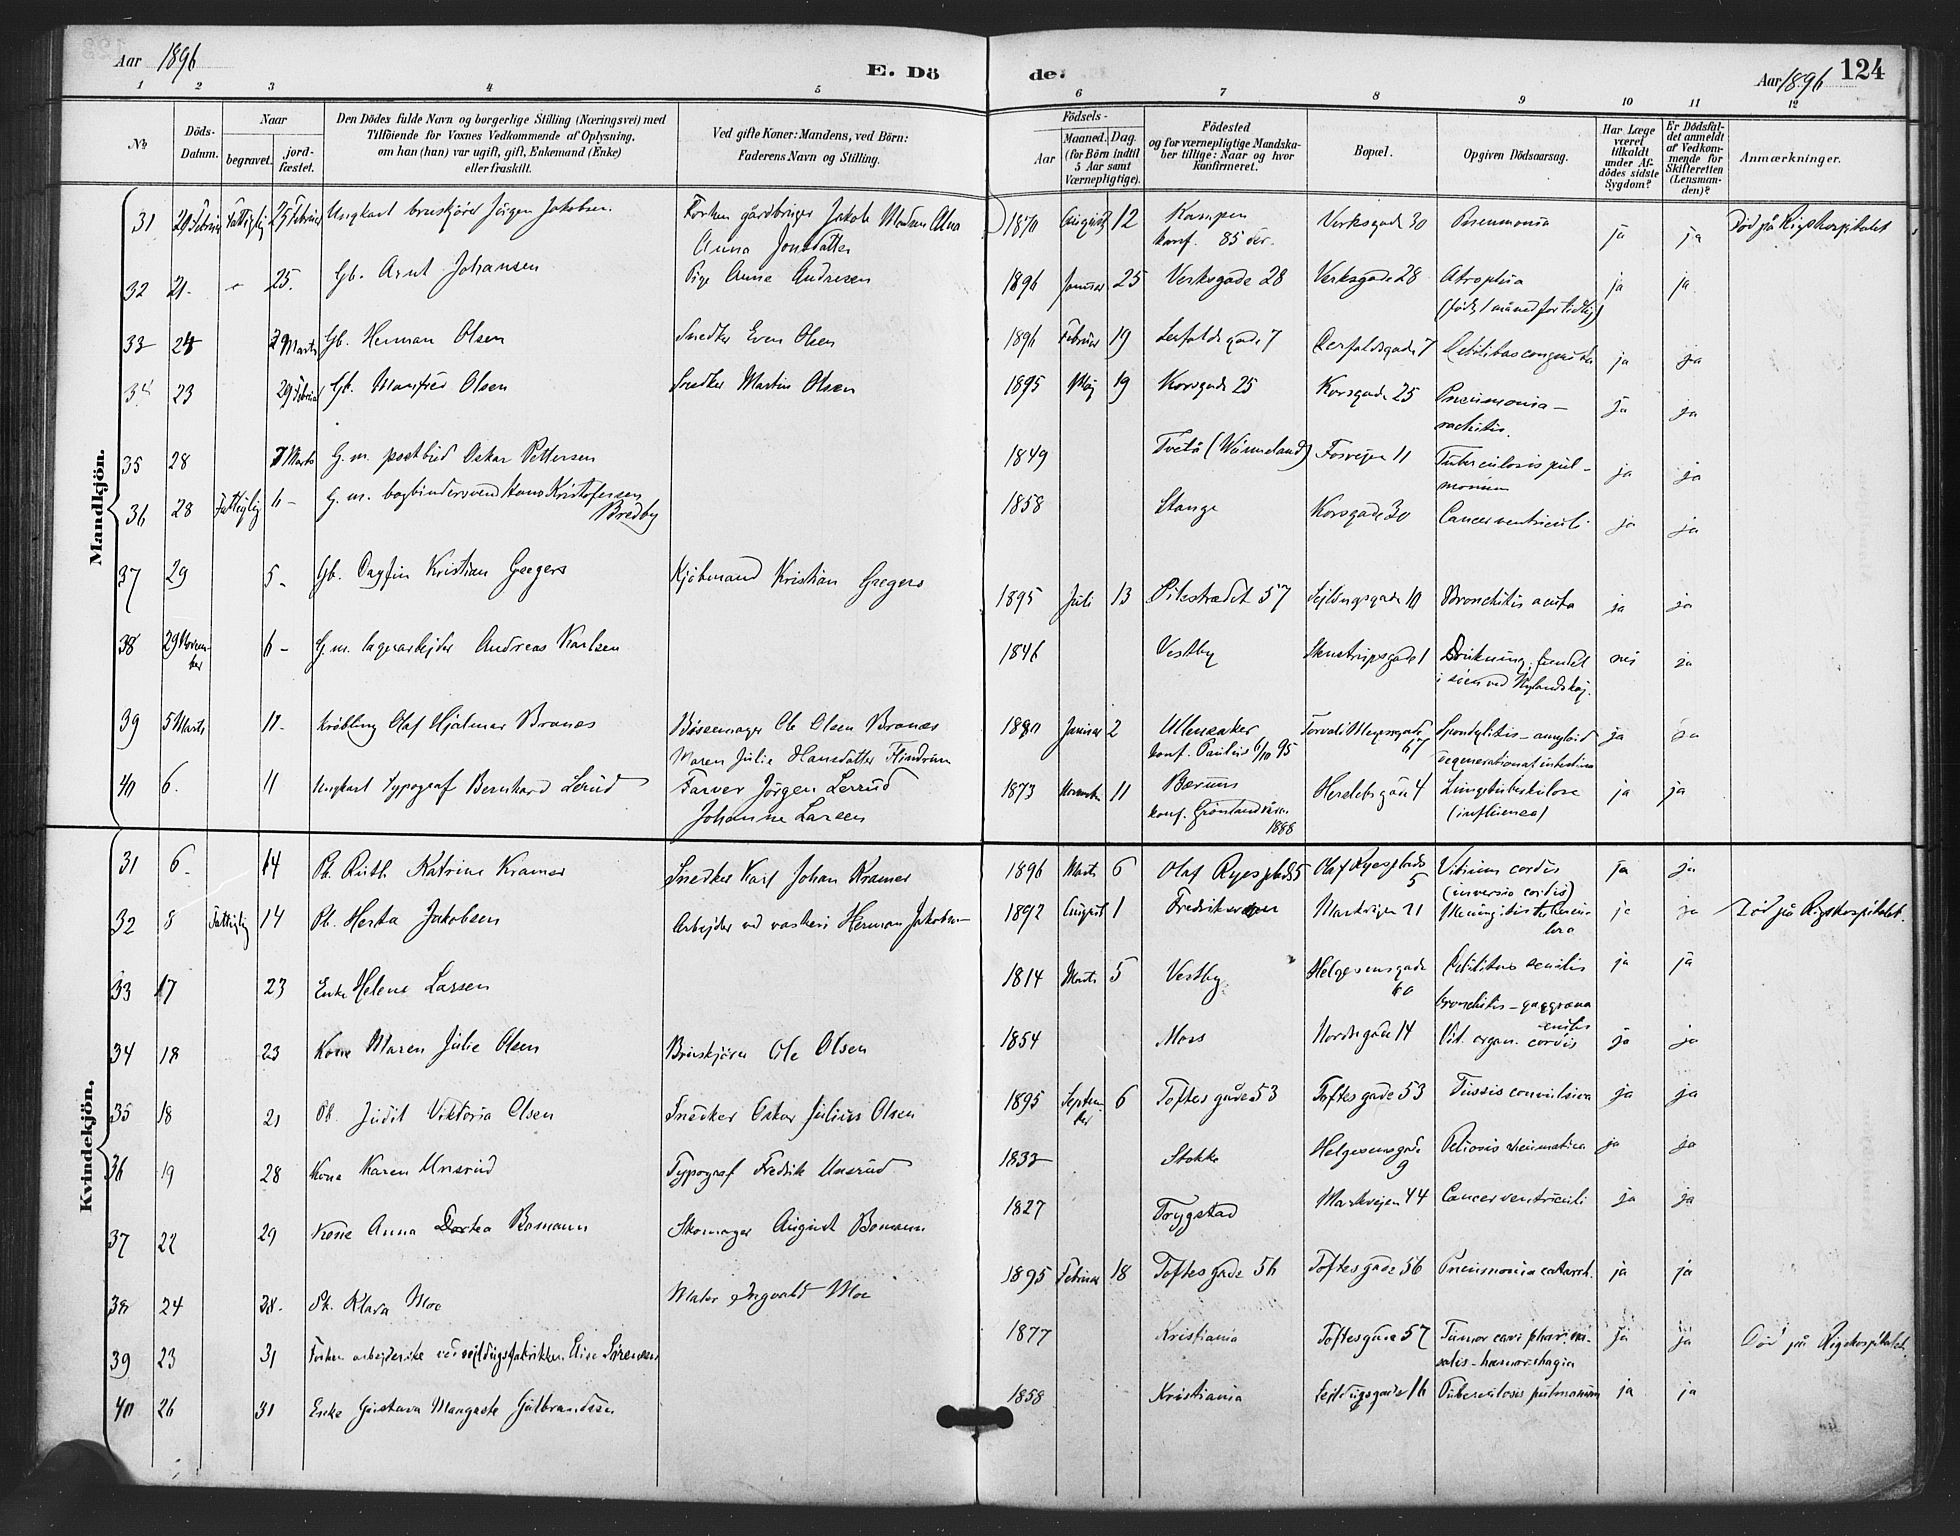 Aar 1896
E. Dö
de.
Aar 1896
124
1 2 3 4 5 6 7 8 9 10 11 12
No
Döds-Datum.
Naar
begravet.
jord-fæstet.
Den Dödes fulde Navn og borgerlige Stilling (Næringsvei) med
Tilföiende for Voxnes Vedkommende af Oplysning,
om han (han) var ugift, gift, Enkemand (Enke)
eller fraskilt.
Ved gifte Koner: Mandens, ved Börn:
Faderens Navn og Stilling.
Födsels-
Aar
Maaned. Dag
(for Börn indtil
5 Aar samt
Værnepligtige).
Födested
og for værnepligtige Mandska-
ber tillige: Naar og hvor
konfirmeret.
Bopæl.
Opgiven Dödsaarsag.
Har Læge
været
tilkaldt
under Af-
dödes sidste
Sygdom?
Er Dödsfal-
det anmeldt
af Vedkom-
mende for
Skifteretten
(Lensman-
den)?
Anmærkninger.
Mandkjön.
31 Fattiglig 25 Februar Ungkarl bruskjører Jörgen Jakobsen Gårdbruger Jakob Madsen 1870 August 12 Kampen Verksgade 30 Pneumonia ja ja Död på Rigshospitalet
Anna Jonsdatter konf. 85
32 21. 25. Gb. Arnt Johansen Pige Anna Andresen 1896 Januar 25 Verksgade 28 Verksgade 28 Atrophia ja ja
(født 1 måned for tidlig)
33 24 Marts Gb. Herman Olsen Snedker Even Olsen 1896 Februar 19 7 7 ja ja
34 23 29 Februar Gb. Manfred Olsen Snedker Martin Olsen 1895 Maj 19 Korsgade 25 Korsgade 25 Pneumonia - ja ja
rachitis.
35 28 7 Marts G. m. postbud Oskar Pettersen 1849 Tveta (Wärmeland) Fosvejen 11 Tuberculosis pul-
monum ja ja
36 28 Fattiglig 6 - G. m. bogbindersvend Hans Kristofersen 1858 Stange Korsgade 30 Cancer ventriculi ja ja
Bredby
37 29 5 - Gb. Dagfin Kristian Gregers Kjøbmand Kristian Gregers 1895 Juli 13 Pilestrædet 57 Sejldugsgade 10 Bronchitis acuta ja ja
38 29 Novem-
ber 6 - G. m. lagerarbejder Andreas Karlsen 1846 Vestby 1 Drukning; fundet nei ja
i søen ved Nylandskaj.
39 5 Marts 11 - Krøbling Olaf Hjalmar Branæs Bøssemager Ole Olsen Branæs 1880 Januar 2 Ullensaker Torvald Meyersgade ja ja
67
Maren Julie Hansdatter konf. Paulus 6/10 95 Spondylitis - amyloid
40 6. 11 Ungkarl Typograf Bernhard Lerud Farver Jörgen Lerud 1873 November 11 Bærum Herslebsgade 4 Lungetuberkulose ja ja
Johanne Larsen konf. Grønland 1888 (influensa)
Kvindekjön.
31 6 14 Pb. Ruth Katrine Kramer Snedker Karl Johan Kramer 1896 Marts 6 Olaf Ryesplads 5 Olaf Ryesplads 5 Vitium cordis ja ja
(inversio cordis)
32 8 Fattiglig 14 Pb. Herta Jakobsen Arbejder ved Herman Jakobsen 1892 August 1 Markvejen 21 Meningitis tubercu-
losa ja ja Död på Rigshospitalet.
33 17 23 Enke Helene Larsen 1814 Marts 5 Vestby Helgesensgade 60 Debilitas senilis ja ja
bronchitis - gangræna
senilis
34 18 23 Kone Maren Julie Olsen Ole Olsen 1854 Moss Nordregade 14 Vit. organ. cordis ja ja
35 18 21 Pb. Judit Viktoria Olsen Snedker Oskar Julius Olsen 1895 Septem-
ber 6 Toftesgade 53 Toftesgade 53 Tussis convulsiva ja ja
36 19 28 Kone Karen Unsrud Typograf Fredrik Unsrud 1833 Stokke Helgesensgade 9 Peliosis rheumatica ja ja
37 22 29 Kone Anna Dortea Bomann Skomager August Bomann 1827 Trygstad Markvejen 44 Cancer ventriculi ja ja
38 24 28. Pb. Klara Moe Maler Ingvald Moe 1895 Februar 18 Toftesgade 56 Toftesgade 56 Pneumonia catarrh. ja ja
39 23 31 arbejderske ved sejldugsfabrikken Elise Sörensen 1877 Kristiania Toftesgade 57 Tumor cavi pharyn- ja ja Död på Rigshospitalet.
hæmorrhagia
40 26 31 Enke Gustava Margrete Gulbrandsen 1858 Kristiania Sejldugsgade 16 Tuberculosis pulmonum ja ja